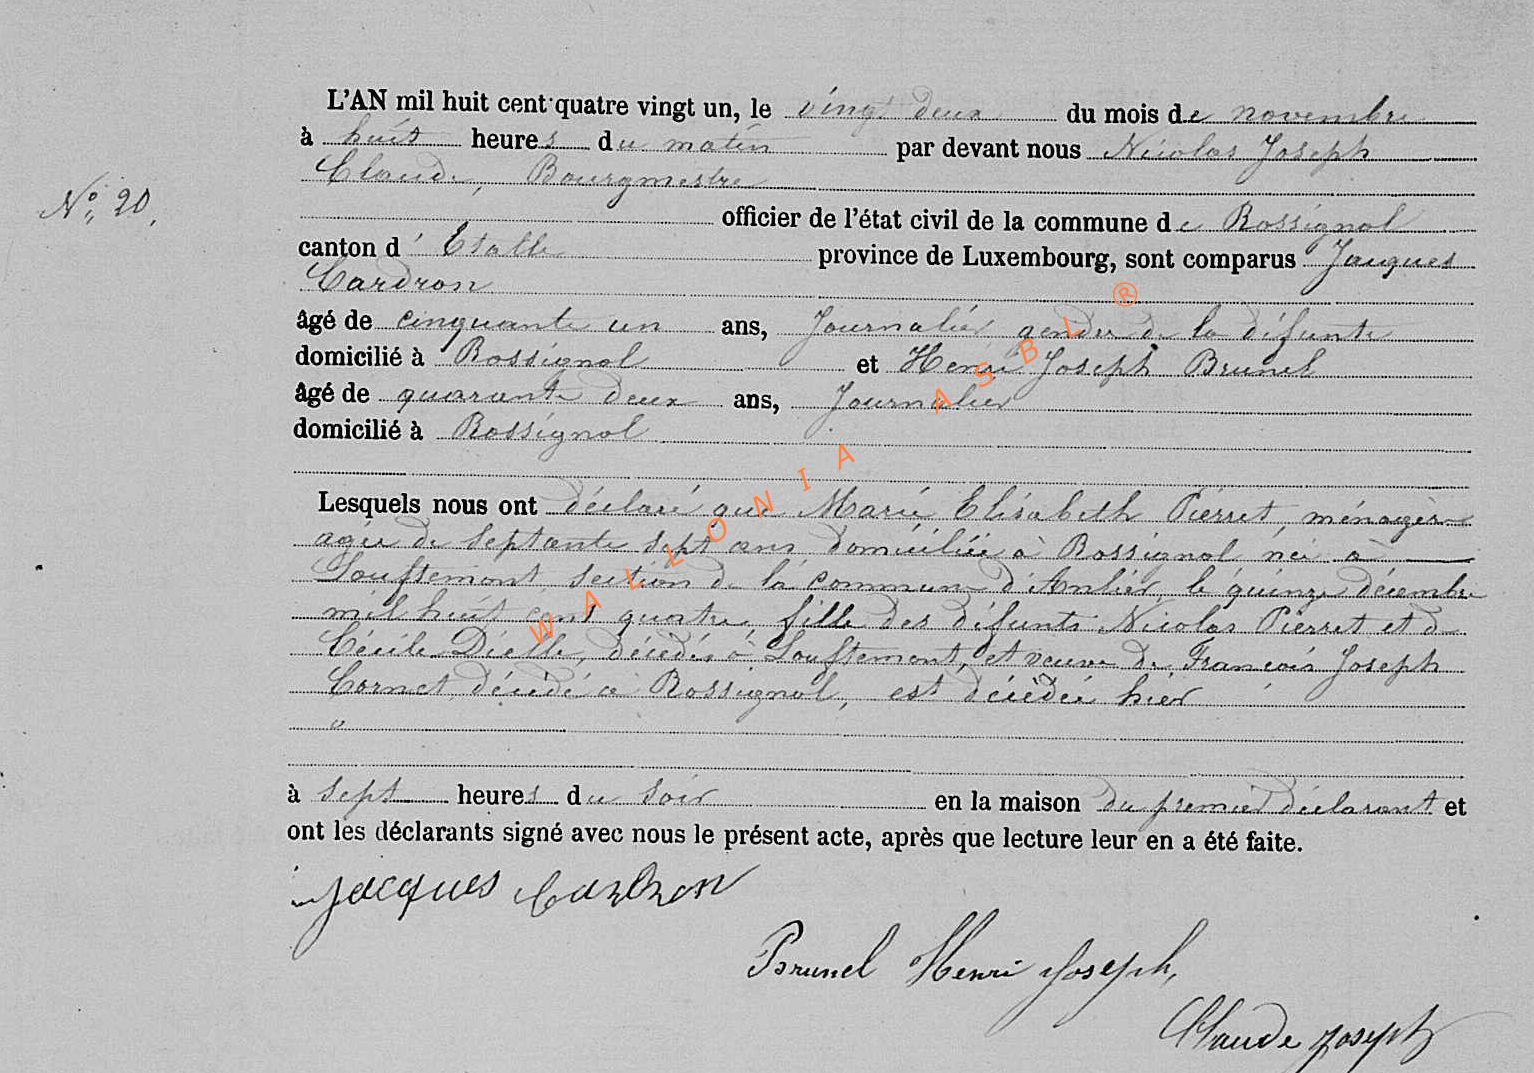 L'AN mil huit cent quatre vingt un, le vingt deux du mois de novembre
à huit heures du matin par devant nous Nicolas Joseph
Claude, Bourgmestre
N° 20.
officier de l'état civil de la commune de Rossignol
canton d'Etalle province de Luxembourg, sont comparus Jacques
Cardron
âgé de cinquante un ans, Journalier gendre de la défunte
domicilié à Rossignol et Henri Joseph Brunel
âgé de quarante deux ans, Journalier
domicilié à Rossignol
Lesquels nous ont déclaré que Marie Elisabeth Pierret, ménagère
agée de septante sept ans domiciliée à Rossignol née à
Louftémont section de la commune d'Anlier, le quinze décembre
mil huit cent quatre fille des défunts Nicolas Pierret et d
Cécile Dielle, décédés à Louftémont, et veuve de François Joseph
Cornet décédé à Rossignol, est décédée hier
"
à sept heures du soir en la maison du premier déclarant et
ont les déclarants signé avec nous le présent acte, après que lecture leur en a été faite.
Jacques Cardron
Brunel Henri Joseph,
Claude Joseph
WALLONIA ASBL ®